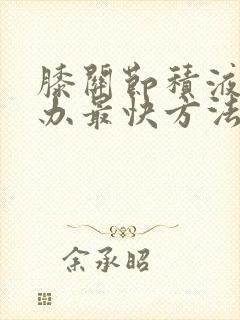 膝關節積液
办最快方法
余承昭